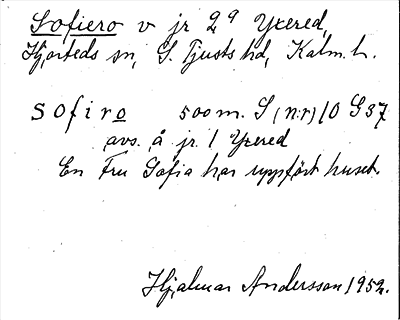 Sofiero v jr 2ᵃ Yxered,
Hjorteds sn, S. Tjusts hd, Kalm. l.
Sofiro 500 m. S (n:r) 10 G37
avs. å jr 1 Yxered
En Fru Sofia har uppfört huset.
Hjalmar Andersson 1952.